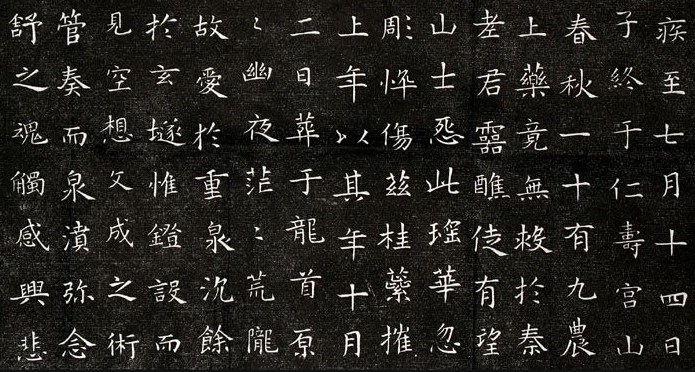 疾至七月十四日
子終于仁壽宮山
春秋一十有九農
上藥竟無救於秦
老君靈醮徒有望
山士怨此瑤華忽
彫悴傷茲桂蘂摧
上年以其年十月
二日葬于龍首原
〻幽夜茫〻荒隴
故愛於重泉沉餘
於玄隧惟鐙設而
見空想文成之術
管奏而泉濆弥念
舒之魂觸感興悲